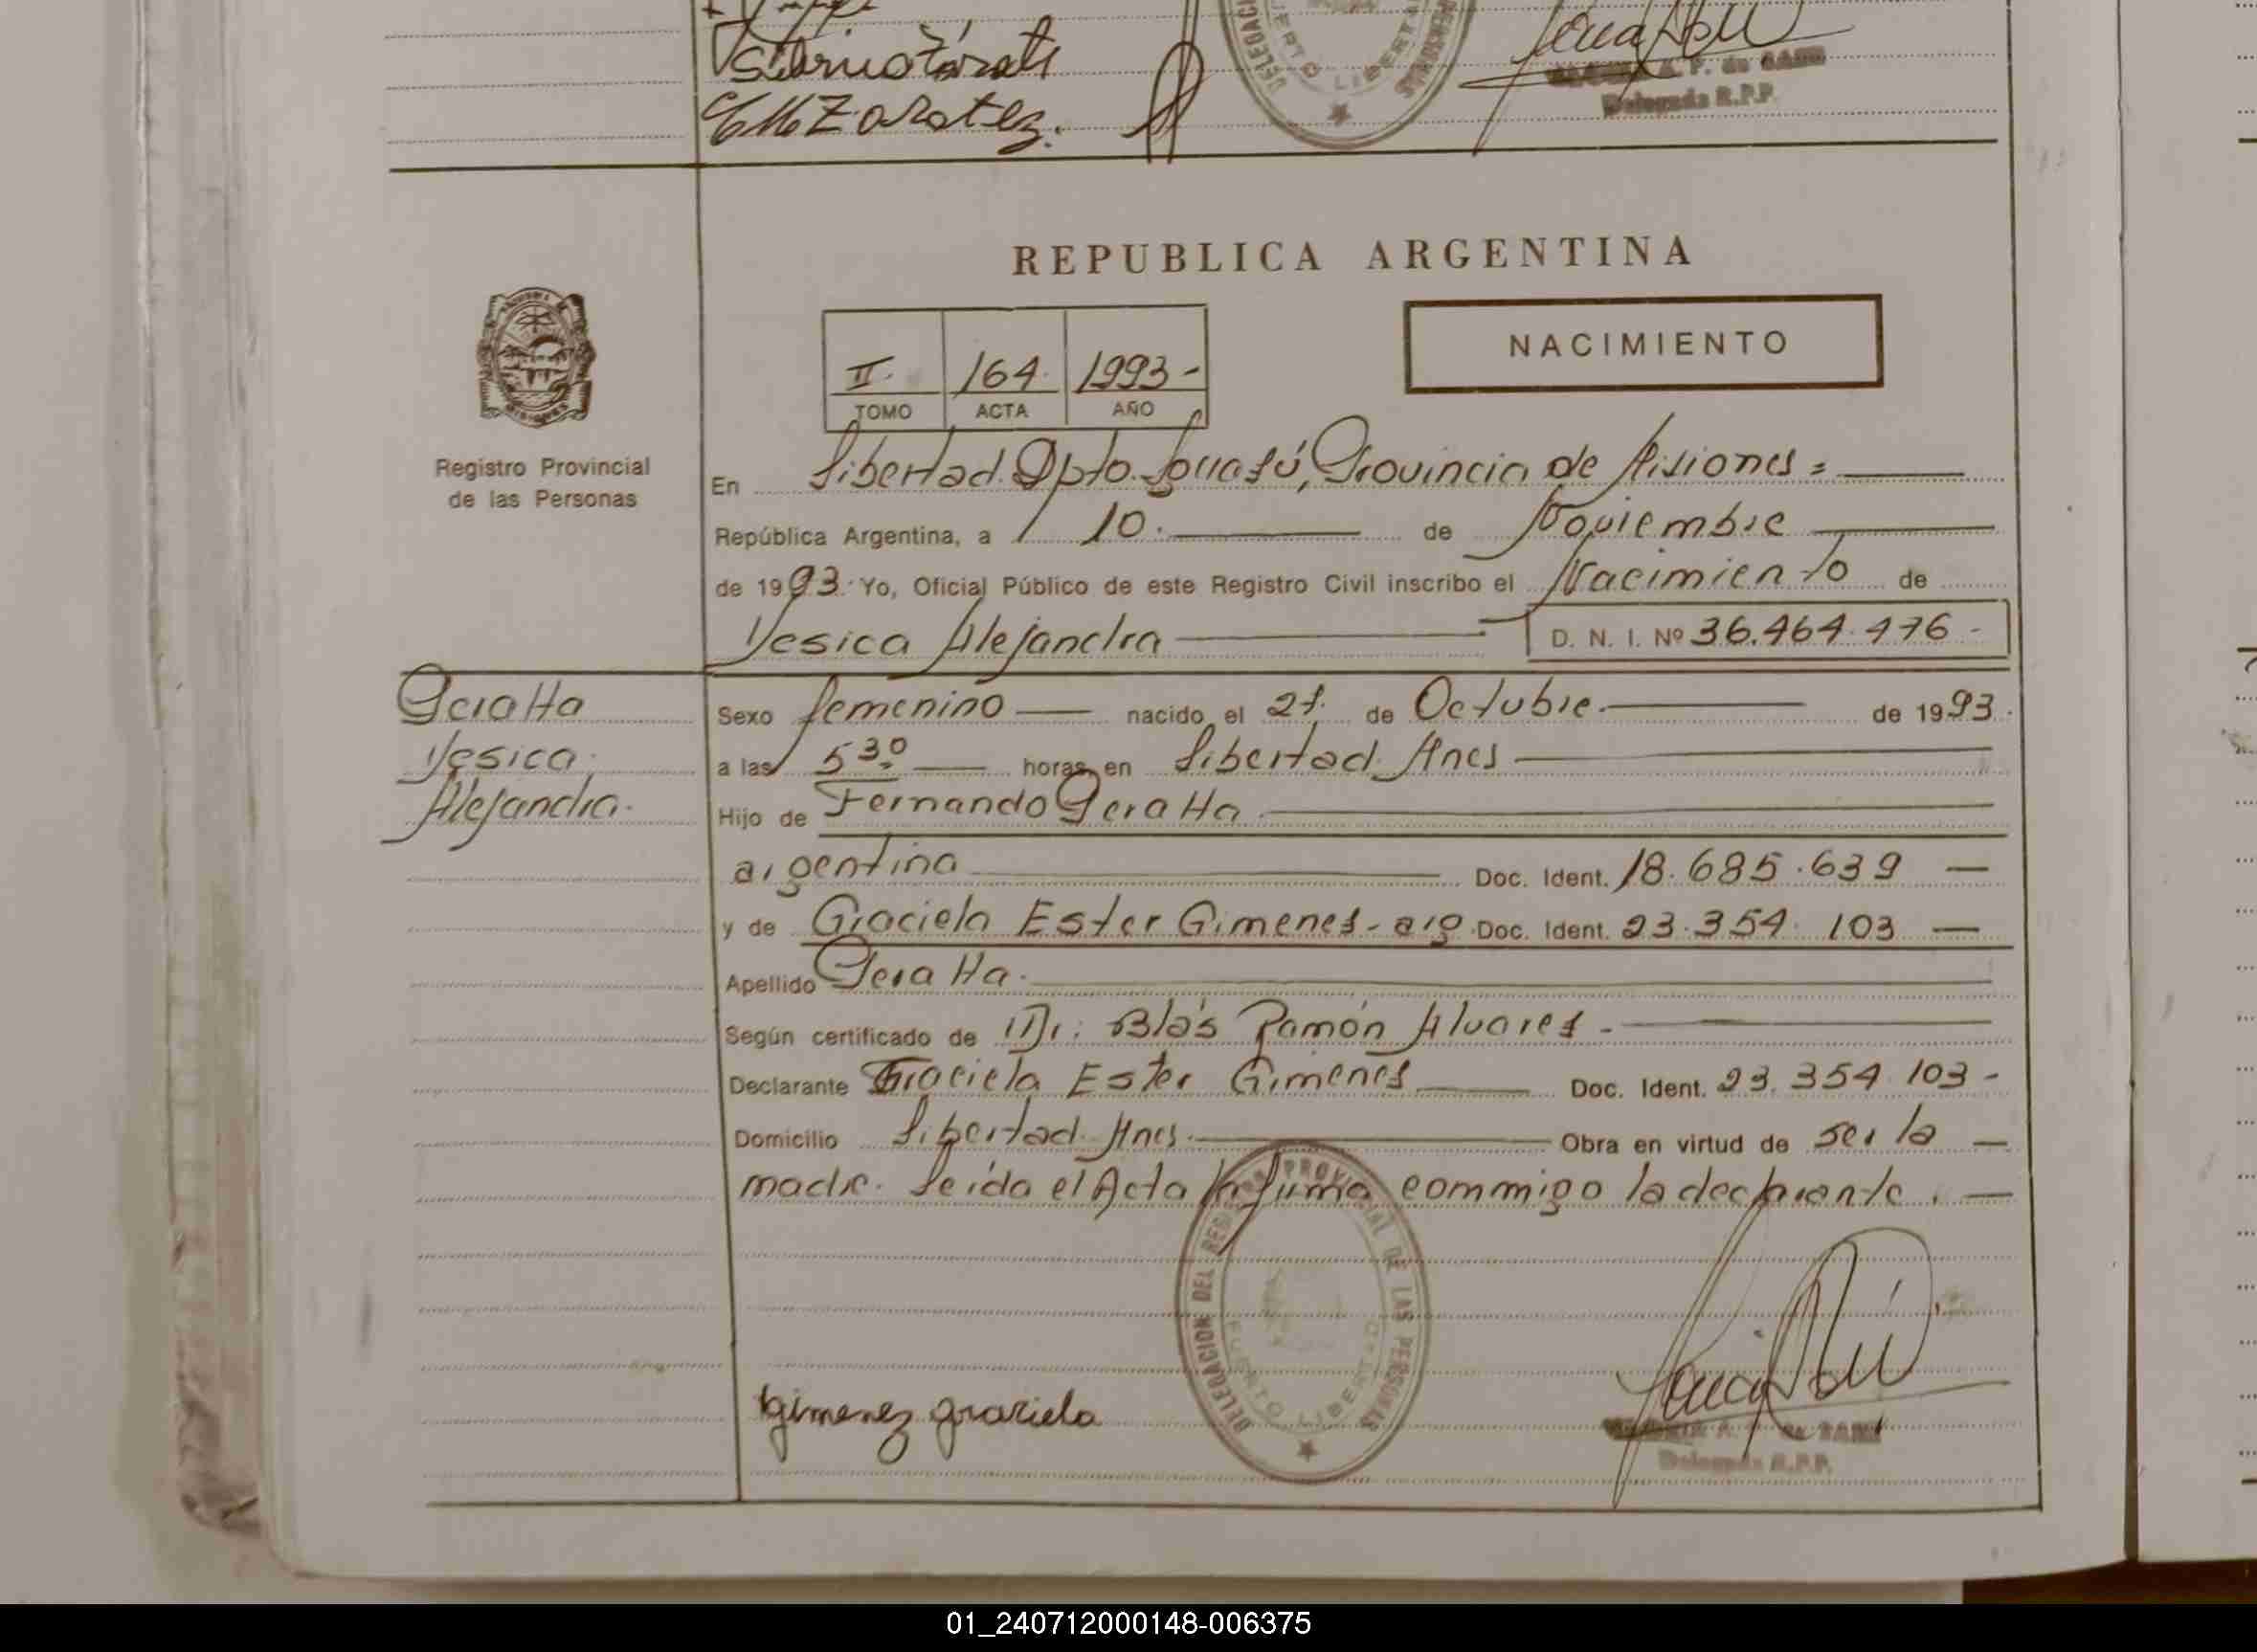 Zarateg.
DELEGACI
PUERTO LIBERTAD
PERSONAS
A. P. de
Delegada R.P.P.
REPUBLICA ARGENTINA
II. 164. 1993-
TOMO ACTA AÑO
NACIMIENTO
Registro Provincial
de las Personas
En Libertad. Dpto. Iguazú, Provincia de Misiones =
República Argentina, a 10. de Noviembre
de 1993. Yo, Oficial Público de este Registro Civil inscribo el Nacimiento de
Yesica Alejandra D. N. I. Nº 36.464.476 -
Peralta
Yesica.
Alejandra.
Sexo femenino nacido el 27. de Octubre. de 1993.
a las 5 30 horas en Libertad. Mnes
Hijo de Fernando Peralta
argentina Doc. Ident. 18.685.639
y de Graciela Ester Gimenes - arg. Doc. Ident. 23.354.103
Apellido Peralta.
Según certificado de Dr. Blás Ramón Alvares -
Declarante Graciela Ester Gimenes Doc. Ident. 23.354.103 -
Domicilio Libertad. Mnes. Obra en virtud de ser la
madre. Leída el Acta la firma commigo la declarante.
DELEGACION DEL REGISTRO PROVINCIAL DE LAS PERSONAS
PUERTO LIBERTAD
Gimenez graciela
Delegada R.P.P.
01_240712000148-006375